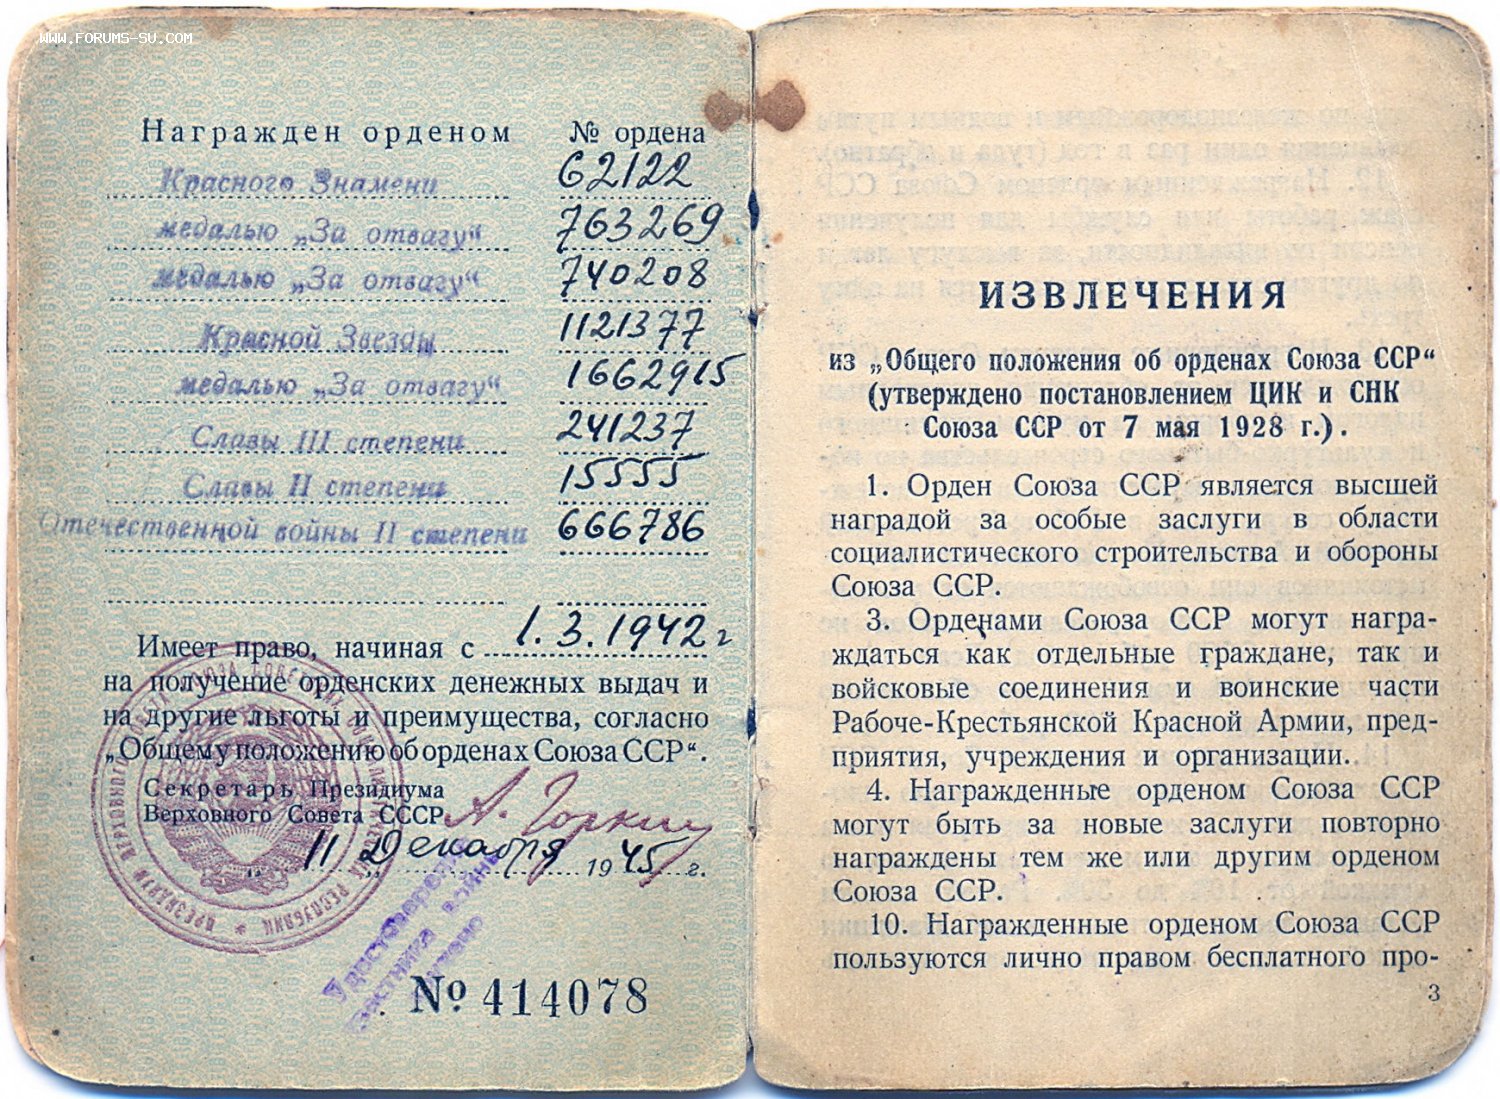 WWW.FORUMS-SU.COM
Награжден орденом № ордена
Красного Знамени 62122
медалью „За отвагу“ 763269
медалью „За отвагу“ 740208
Красной Звезды 1121377
медалью „За отвагу“ 1662915
Славы III степени 241237
Славы II степени 15555
Отечественной войны II степени 666786
Имеет право, начиная с 1.3.1942 г
на получение орденских денежных выдач и
на другие льготы и преимущества, согласно
„Общему положению об орденах Союза ССР“.
Секретарь Президиума
Верховного Совета СССР А. Горкин
11 Декабря 1945 г.
Удостоверение
участника войны
вручено
№ 414078
ИЗВЛЕЧЕНИЯ
из „Общего положения об орденах Союза ССР“
(утверждено постановлением ЦИК и СНК
Союза ССР от 7 мая 1928 г.).
1. Орден Союза ССР является высшей
наградой за особые заслуги в области
социалистического строительства и обороны
Союза ССР.
3. Орденами Союза ССР могут награ-
ждаться как отдельные граждане, так и
войсковые соединения и воинские части
Рабоче-Крестьянской Красной Армии, пред-
приятия, учреждения и организации.
4. Награжденные орденом Союза ССР
могут быть за новые заслуги повторно
награждены тем же или другим орденом
Союза ССР.
10. Награжденные орденом Союза ССР
пользуются лично правом бесплатного про-
3